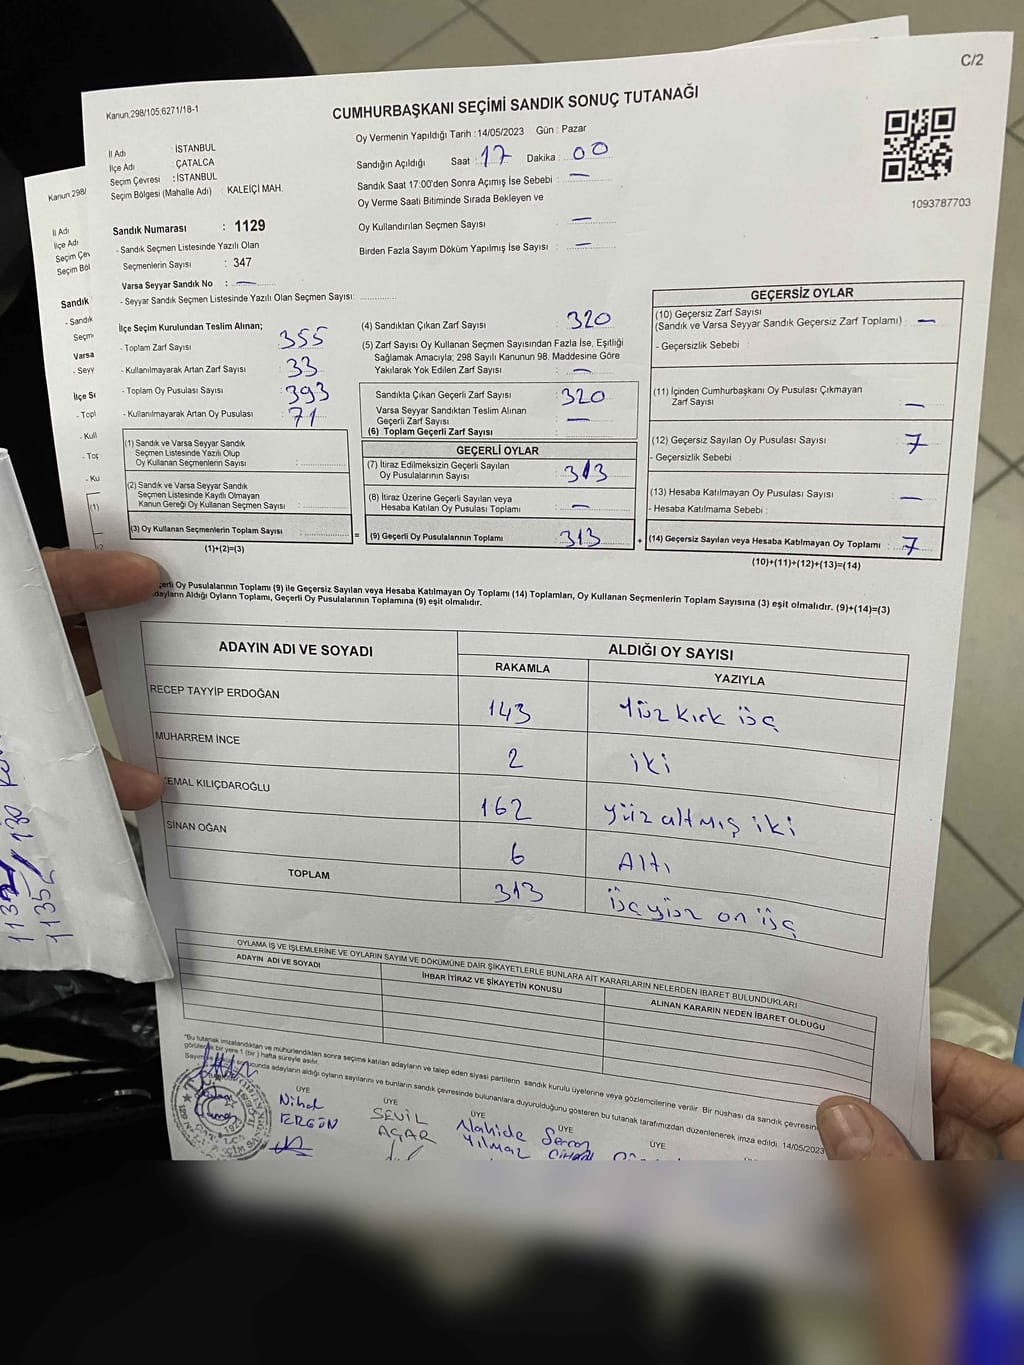 C/2
Kanun:298/105;6271/18-1
CUMHURBAŞKANI SEÇİMİ SANDIK SONUÇ TUTANAĞI
Oy Vermenin Yapıldığı Tarih : 14/05/2023 Gün : Pazar
İl Adı : İSTANBUL
İlçe Adı : ÇATALCA
Seçim Çevresi : İSTANBUL
Seçim Bölgesi (Mahalle Adı) : KALEİÇİ MAH.
Sandığın Açıldığı Saat : 17 Dakika : 00
Sandık Saat 17:00'den Sonra Açımış İse Sebebi : —
Oy Verme Saati Bitiminde Sırada Bekleyen ve
Oy Kullandırılan Seçmen Sayısı : —
Birden Fazla Sayım Döküm Yapılmış İse Sayısı : —
1093787703
Sandık Numarası : 1129
- Sandık Seçmen Listesinde Yazılı Olan
Seçmenlerin Sayısı : 347
Varsa Seyyar Sandık No : —
- Seyyar Sandık Seçmen Listesinde Yazılı Olan Seçmen Sayısı:
İlçe Seçim Kurulundan Teslim Alınan;
- Toplam Zarf Sayısı : 355
- Kullanılmayarak Artan Zarf Sayısı : 33
- Toplam Oy Pusulası Sayısı : 393
- Kullanılmayarak Artan Oy Pusulası : 71
(1) Sandık ve Varsa Seyyar Sandık
Seçmen Listesinde Yazılı Olup
Oy Kullanan Seçmenlerin Sayısı :
(2) Sandık ve Varsa Seyyar Sandık
Seçmen Listesinde Kayıtlı Olmayan
Kanun Gereği Oy Kullanan Seçmen Sayısı :
(3) Oy Kullanan Seçmenlerin Toplam Sayısı :
(1)+(2)=(3)
(4) Sandıktan Çıkan Zarf Sayısı : 320
(5) Zarf Sayısı Oy Kullanan Seçmen Sayısından Fazla İse, Eşitliği
Sağlamak Amacıyla; 298 Sayılı Kanunun 98. Maddesine Göre
Yakılarak Yok Edilen Zarf Sayısı : —
Sandıkta Çıkan Geçerli Zarf Sayısı : 320
Varsa Seyyar Sandıktan Teslim Alınan
Geçerli Zarf Sayısı : —
(6) Toplam Geçerli Zarf Sayısı :
GEÇERLİ OYLAR
(7) İtiraz Edilmeksizin Geçerli Sayılan
Oy Pusulalarının Sayısı : 313
(8) İtiraz Üzerine Geçerli Sayılan veya
Hesaba Katılan Oy Pusulası Toplamı : —
= (9) Geçerli Oy Pusulalarının Toplamı : 313 +
GEÇERSİZ OYLAR
(10) Geçersiz Zarf Sayısı
(Sandık ve Varsa Seyyar Sandık Geçersiz Zarf Toplamı) : —
- Geçersizlik Sebebi :
(11) İçinden Cumhurbaşkanı Oy Pusulası Çıkmayan
Zarf Sayısı : —
(12) Geçersiz Sayılan Oy Pusulası Sayısı : 7
- Geçersizlik Sebebi :
(13) Hesaba Katılmayan Oy Pusulası Sayısı : —
- Hesaba Katılmama Sebebi :
(14) Geçersiz Sayılan veya Hesaba Katılmayan Oy Toplamı : 7
(10)+(11)+(12)+(13)=(14)
Oy Pusulalarının Toplamı (9) ile Geçersiz Sayılan veya Hesaba Katılmayan Oy Toplamı (14) Toplamları, Oy Kullanan Seçmenlerin Toplam Sayısına (3) eşit olmalıdır. (9)+(14)=(3)
Aldığı Oyların Toplamı, Geçerli Oy Pusulalarının Toplamına (9) eşit olmalıdır.
ADAYIN ADI VE SOYADI ALDIĞI OY SAYISI
RAKAMLA YAZIYLA
RECEP TAYYİP ERDOĞAN 143 Yüz kırk üç
MUHARREM İNCE 2 iki
KEMAL KILIÇDAROĞLU 162 yüz altmış iki
SİNAN OĞAN 6 Altı
TOPLAM 313 üçyüz on üç
OYLAMA İŞ VE İŞLEMLERİNE VE OYLARIN SAYIM VE DÖKÜMÜNE DAİR ŞİKAYETLERLE BUNLARA AİT KARARLARIN NELERDEN İBARET BULUNDUKLARI
ADAYIN ADI VE SOYADI İHBAR İTİRAZ VE ŞİKAYETİN KONUSU ALINAN KARARIN NEDEN İBARET OLDUĞU
"Bu tutanak imzalandıktan ve mühürlendikten sonra seçime katılan adayların ve talep eden siyasi partilerin sandık kurulu üyelerine veya gözlemcilerine verilir. Bir nüshası da sandık çevresin
bir yere 1 (bir) hafta süreyle asılır.
sonucunda adayların aldığı oyların sayılarını ve bunların sandık çevresinde bulunanlara duyurulduğunu gösteren bu tutanak tarafımızdan düzenlenerek imza edildi. 14/05/2023
ÜYE ÜYE ÜYE ÜYE ÜYE
Nihal ERGÜN
SEVİL AÇAR
Nahide Yılmaz
Kanun:298/
İl Adı
İlçe Adı
Seçim Çev
Seçim Böl
Sandık
- Sandık
Seçm
Varsa
- Seyy
- Topl
- Kull
- Ku
(1)
1135